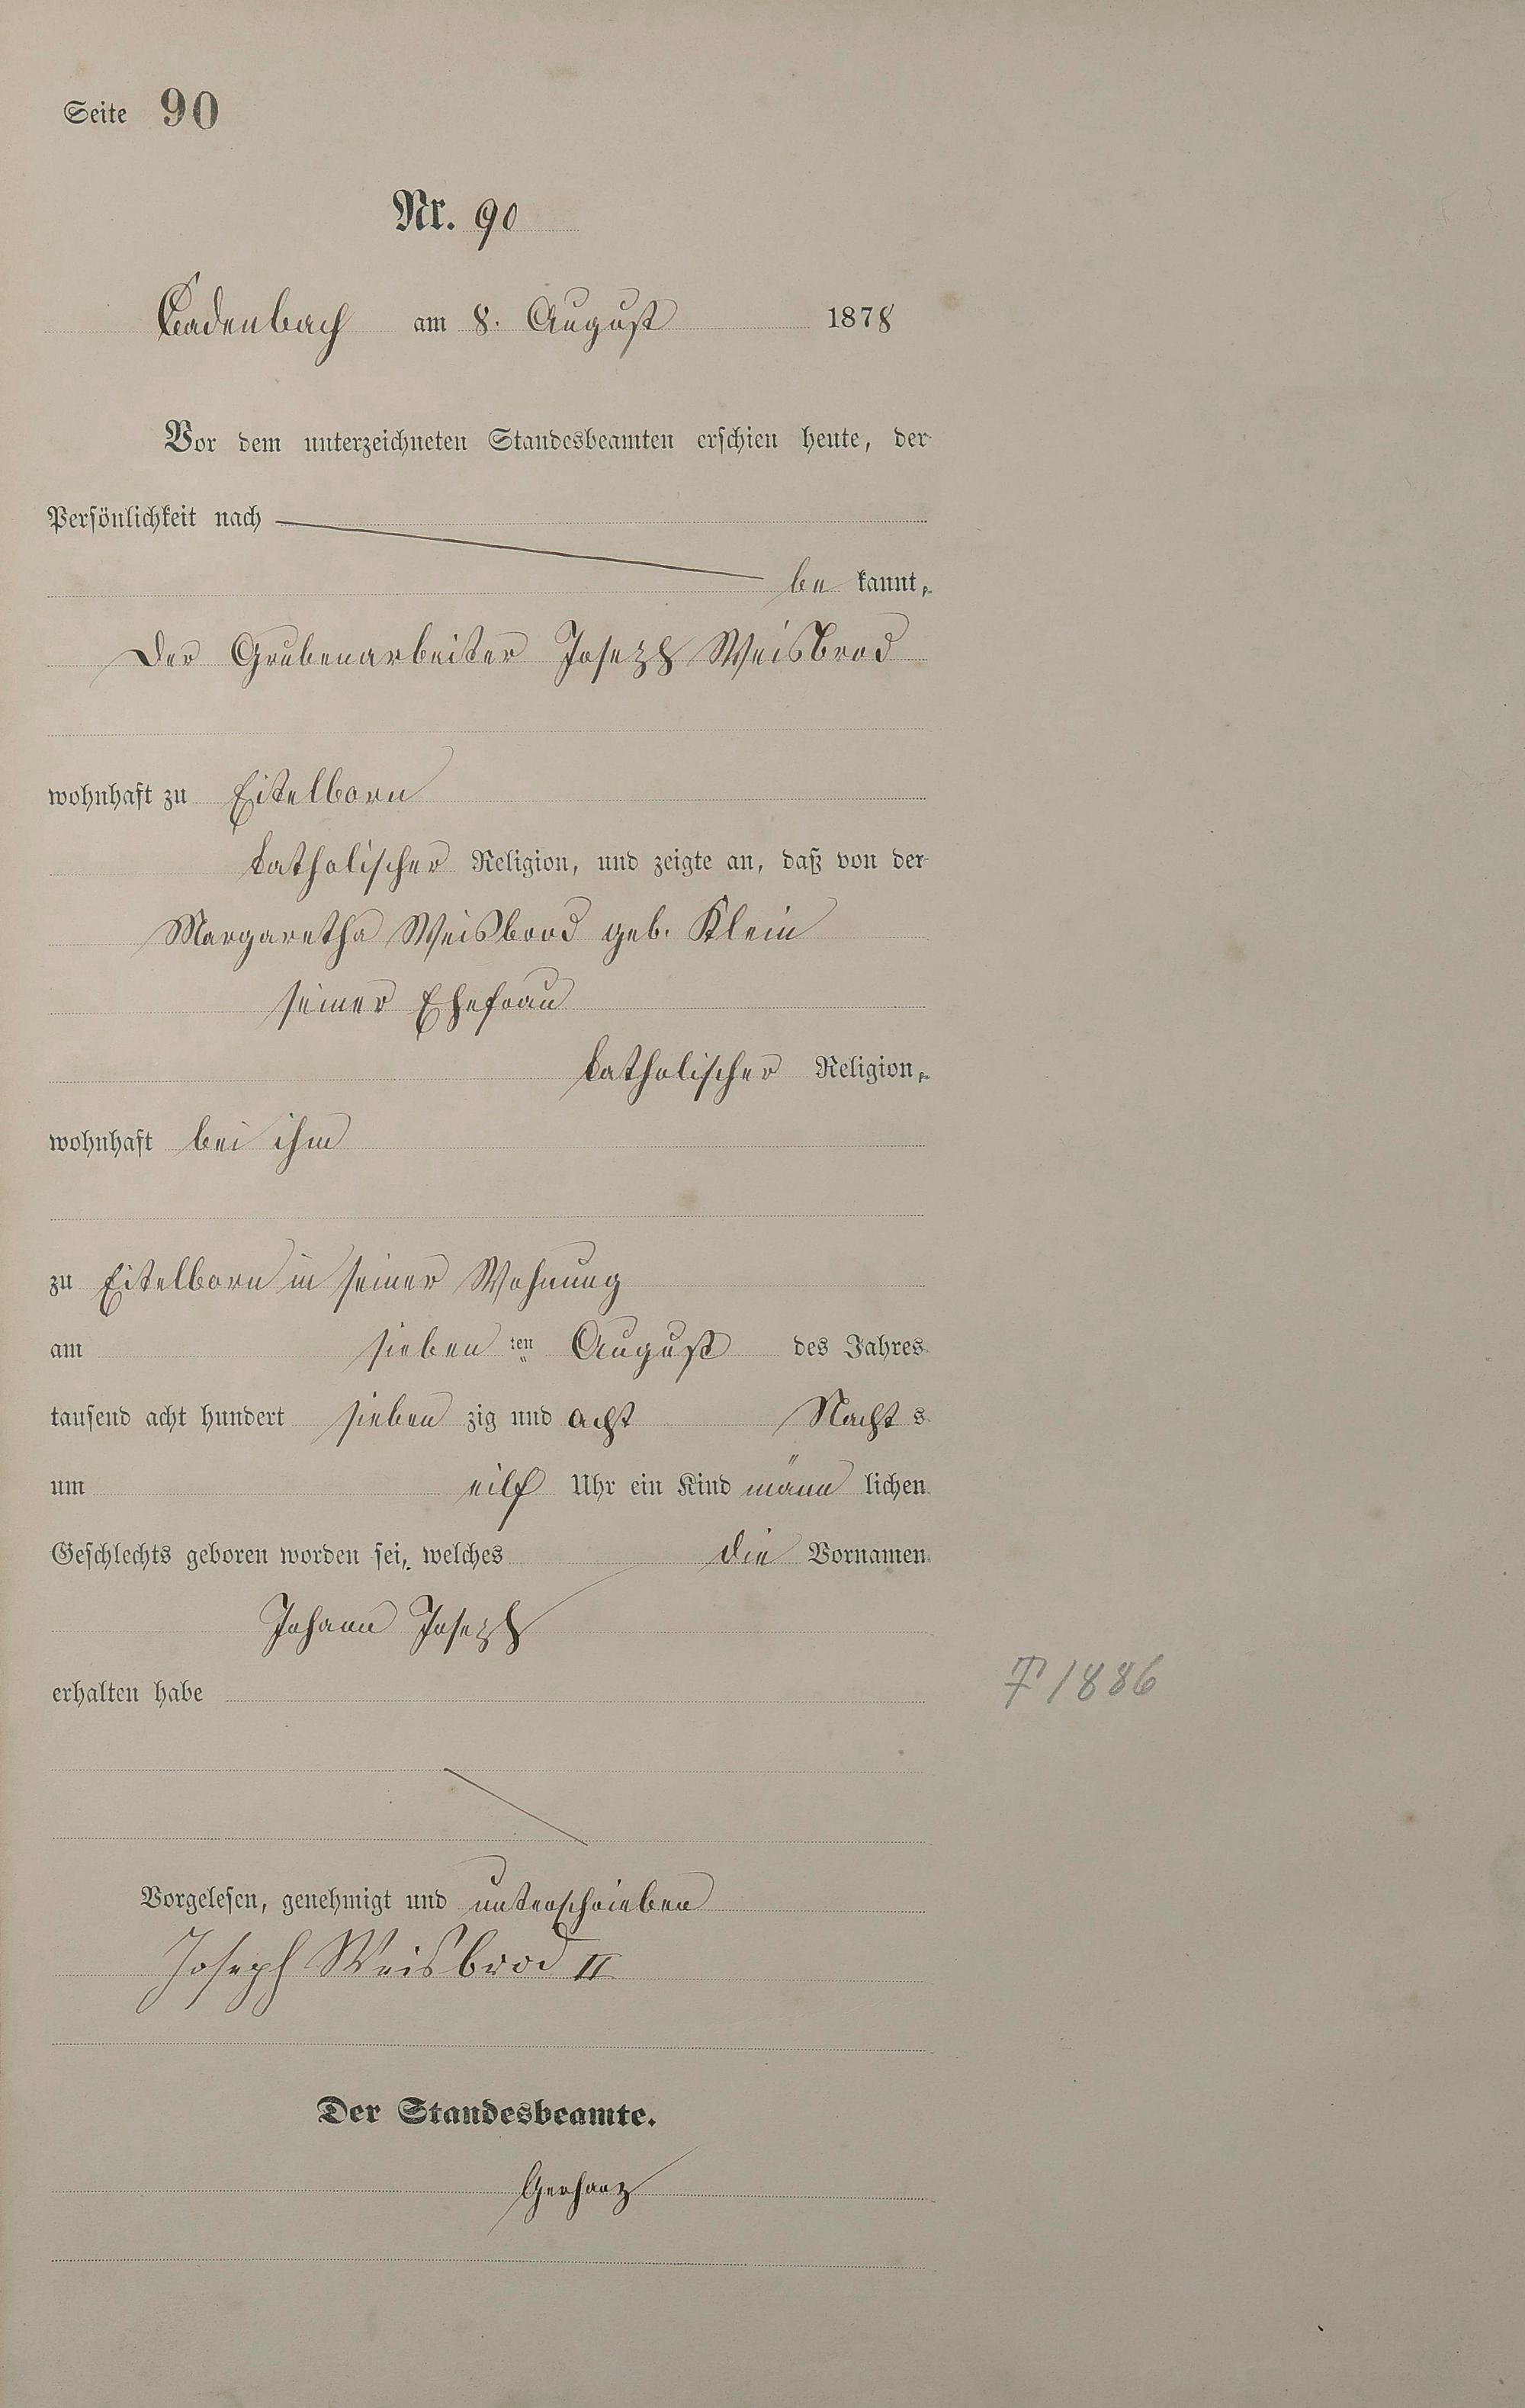 Seite 90
Nr. 90
Cadenbach am 8. August 1878
Vor dem unterzeichneten Standesbeamten erschien heute, der
Persönlichkeit nach
be kannt,
Der Grubenarbeiter Joseph Weisbrod
wohnhaft zu Eitelborn
katholischer Religion, und zeigte an, daß von der
Margaretha Weisbrod geb. Klein
seiner Ehefrau
katholischer Religion,
wohnhaft bei ihm
zu Eitelborn in seiner Wohnung
am sieben ten August des Jahres
tausend acht hundert sieben zig und acht Nacht s
um eilf Uhr ein Kind männ lichen
Geschlechts geboren worden sei, welches die Vornamen
Johann Joseph
erhalten habe
† 1886
Vorgelesen, genehmigt und unterschrieben
Joseph Weisbrod II
Der Standesbeamte.
Gerharz